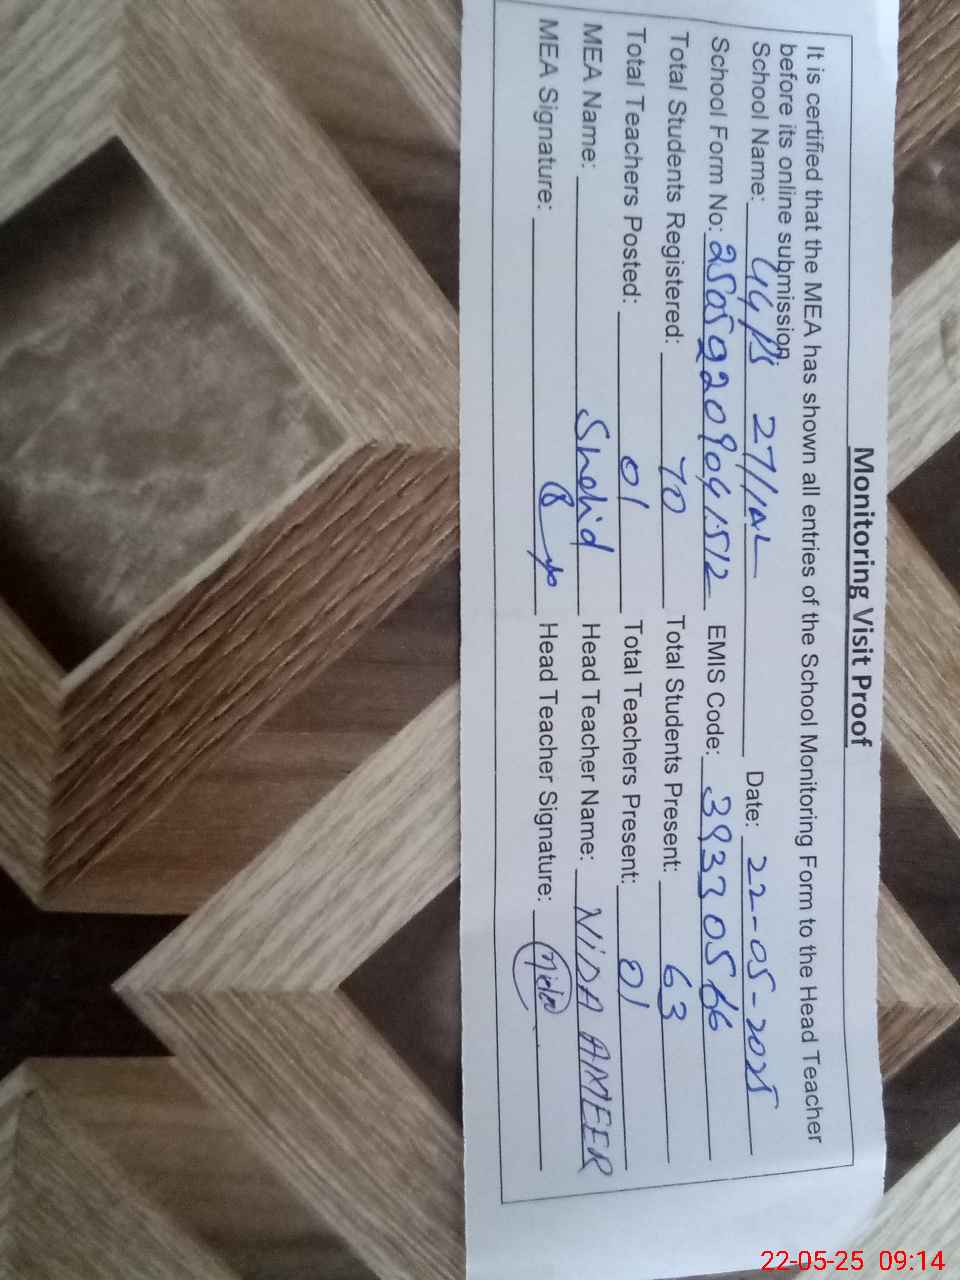 Monitoring Visit Proof
It is certified that the MEA has shown all entries of the School Monitoring Form to the Head Teacher
before its online submission.
School Name: GGPS 27/1AL Date: 22-05-2025
School Form No: EMIS Code: 39330566
Total Students Registered: 70 Total Students Present: 63
Total Teachers Posted: 01 Total Teachers Present: 01
MEA Name: Shahid Head Teacher Name: NiDA AMEER
MEA Signature: Head Teacher Signature: Nida
22-05-25 09:14